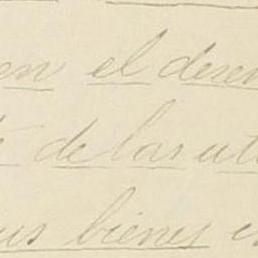 en el desen
de las uti
us bienes e